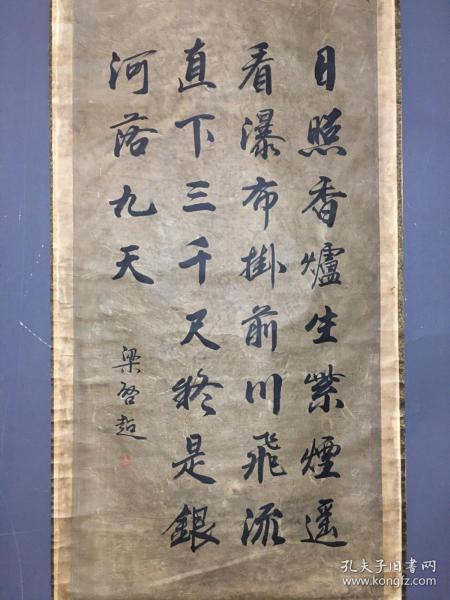 日照香爐生紫煙遥
看瀑布掛前川飛流
直下三千尺終是銀
河落九天
梁啓超
孔夫子旧书网
www.kongfz.com